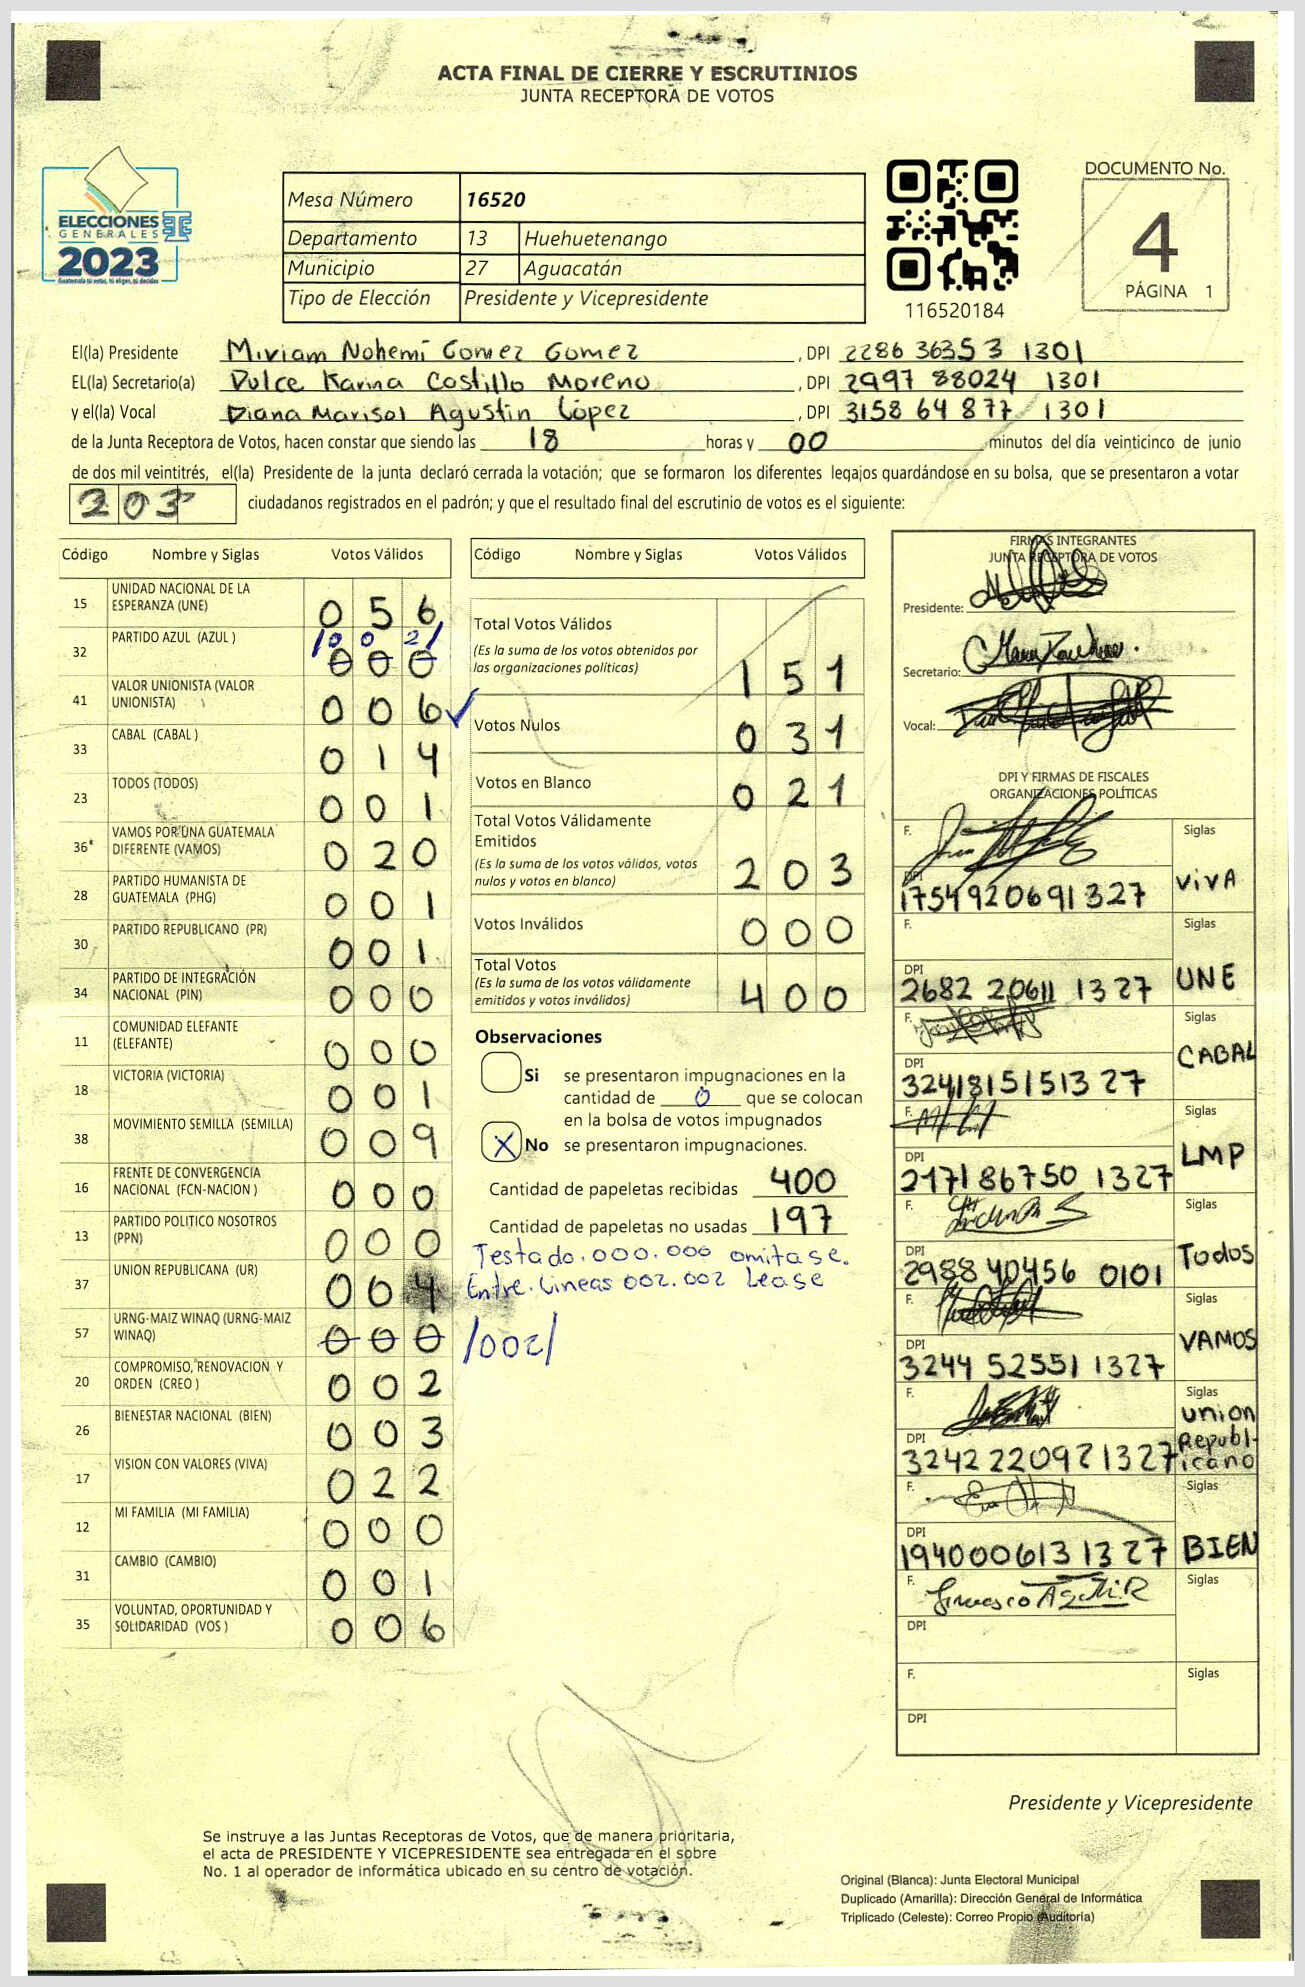 ACTA FINAL DE CIERRE Y ESCRUTINIOS
JUNTA RECEPTORA DE VOTOS
ELECCIONES
GENERALES
2023
Mesa Número 16520
Departamento 13 Huehuetenango
Municipio 27 Aguacatán
Tipo de Elección Presidente y Vicepresidente
116520184
DOCUMENTO No.
4
PÁGINA 1
El(la) Presidente Miriam Nohemí Gomez Gomez , DPI 2286 36353 1301
EL(la) Secretario(a) Dulce Karina Castillo Moreno , DPI 2997 88024 1301
y el(la) Vocal Diana Marisol Agustin López , DPI 3158 64 877 1301
de la Junta Receptora de Votos, hacen constar que siendo las 18 horas y 00 minutos del día veinticinco de junio
de dos mil veintitrés, el(la) Presidente de la junta declaró cerrada la votación; que se formaron los diferentes legajos guardándose en su bolsa, que se presentaron a votar
203 ciudadanos registrados en el padrón; y que el resultado final del escrutinio de votos es el siguiente:
Código Nombre y Siglas Votos Válidos
15 UNIDAD NACIONAL DE LA ESPERANZA (UNE) 0 5 6
32 PARTIDO AZUL (AZUL ) /0 0 2/ 0 0 0
41 VALOR UNIONISTA (VALOR UNIONISTA) 0 0 6
33 CABAL (CABAL ) 0 1 4
23 TODOS (TODOS) 0 0 1
36 VAMOS POR UNA GUATEMALA DIFERENTE (VAMOS) 0 2 0
28 PARTIDO HUMANISTA DE GUATEMALA (PHG) 0 0 1
30 PARTIDO REPUBLICANO (PR) 0 0 1
34 PARTIDO DE INTEGRACIÓN NACIONAL (PIN) 0 0 0
11 COMUNIDAD ELEFANTE (ELEFANTE) 0 0 0
18 VICTORIA (VICTORIA) 0 0 1
38 MOVIMIENTO SEMILLA (SEMILLA) 0 0 9
16 FRENTE DE CONVERGENCIA NACIONAL (FCN-NACION ) 0 0 0
13 PARTIDO POLITICO NOSOTROS (PPN) 0 0 0
37 UNION REPUBLICANA (UR) 0 0 4
57 URNG-MAIZ WINAQ (URNG-MAIZ WINAQ) 0 0 0 /002/
20 COMPROMISO, RENOVACION Y ORDEN (CREO ) 0 0 2
26 BIENESTAR NACIONAL (BIEN) 0 0 3
17 VISION CON VALORES (VIVA) 0 2 2
12 MI FAMILIA (MI FAMILIA) 0 0 0
31 CAMBIO (CAMBIO) 0 0 1
35 VOLUNTAD, OPORTUNIDAD Y SOLIDARIDAD (VOS ) 0 0 6
Código Nombre y Siglas Votos Válidos
Total Votos Válidos
(Es la suma de los votos obtenidos por
las organizaciones políticas) 1 5 1
Votos Nulos 0 3 1
Votos en Blanco 0 2 1
Total Votos Válidamente
Emitidos
(Es la suma de los votos válidos, votos
nulos y votos en blanco) 2 0 3
Votos Inválidos 0 0 0
Total Votos
(Es la suma de los votos válidamente
emitidos y votos inválidos) 4 0 0
Observaciones
Si se presentaron impugnaciones en la
cantidad de 0 que se colocan
en la bolsa de votos impugnados
X No se presentaron impugnaciones.
Cantidad de papeletas recibidas 400
Cantidad de papeletas no usadas 197
Testado.000.000 omitase.
Entre.Lineas 002.002 Lease
FIRMAS INTEGRANTES
JUNTA RECEPTORA DE VOTOS
Presidente:
Secretario:
Vocal:
DPI Y FIRMAS DE FISCALES
ORGANIZACIONES POLÍTICAS
F. Siglas
DPI 1754920691327 VIVA
F. Siglas
DPI 2682 20611 1327 UNE
F. Siglas
DPI 3241815151327 CABAL
F. Siglas
DPI 2171 86750 1327 LMP
F. Siglas
DPI 2988 40456 0101 Todos
F. Siglas
DPI 3244 52551 1327 VAMOS
F. Siglas
DPI 3242 22092 1327 union Republicano
F. Siglas
DPI 1940006131327 BIEN
F. Siglas
DPI
F. Siglas
DPI
Presidente y Vicepresidente
Se instruye a las Juntas Receptoras de Votos, que de manera prioritaria,
el acta de PRESIDENTE Y VICEPRESIDENTE sea entregada en el sobre
No. 1 al operador de informática ubicado en su centro de votación.
Original (Blanca): Junta Electoral Municipal
Duplicado (Amarilla): Dirección General de Informática
Triplicado (Celeste): Correo Propio (Auditoría)